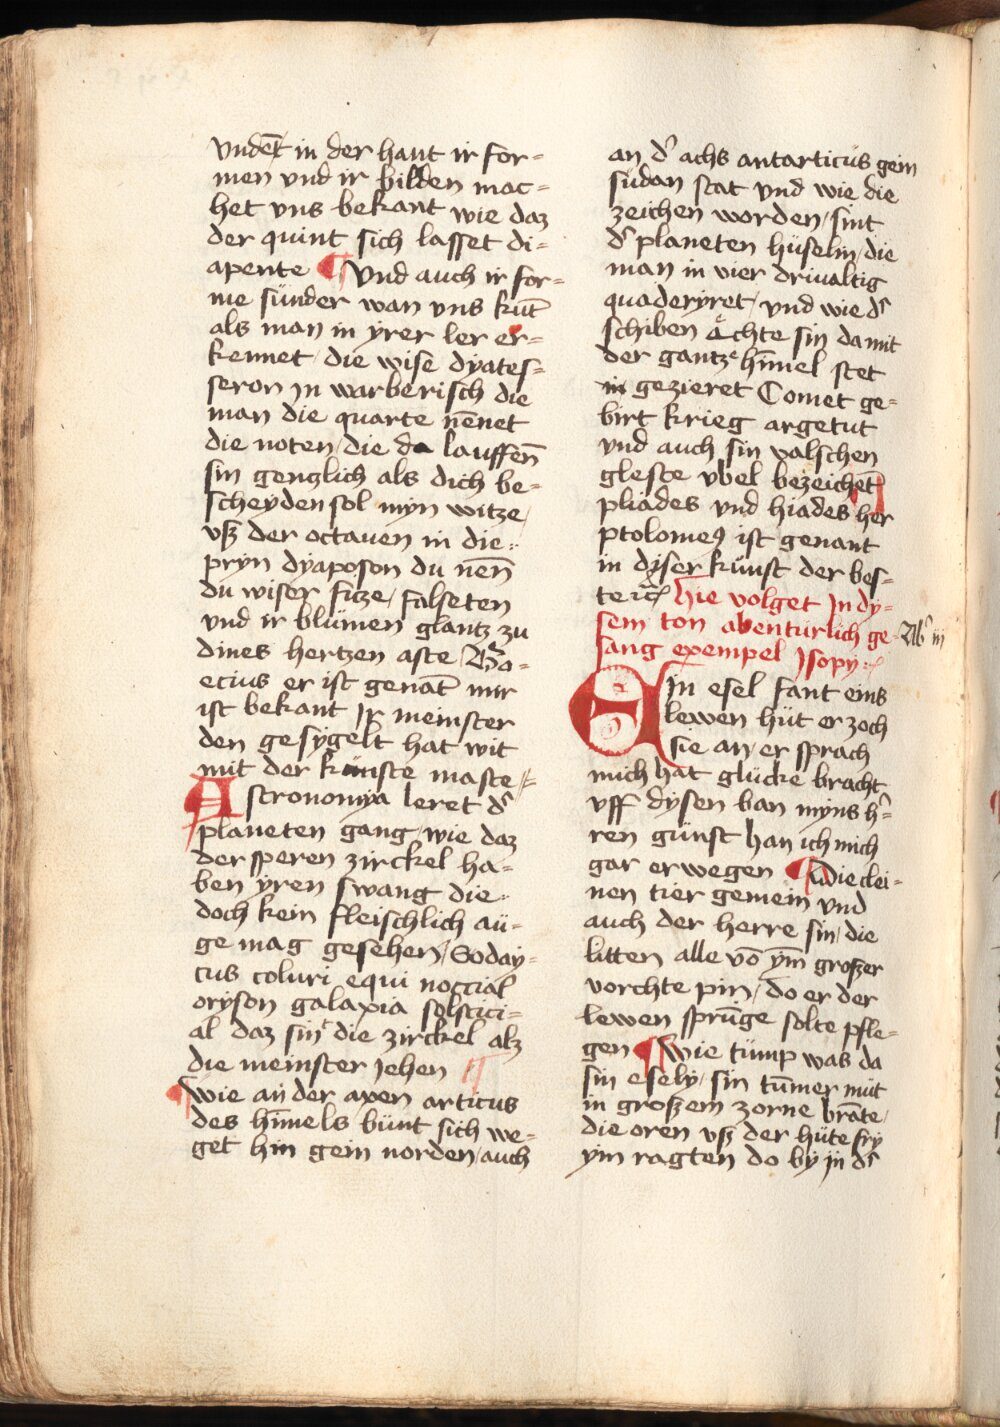 vnden̄t in der hant ir for=
men vnd ir bilden mac=
het vns bekant wie daz
der quint sich lasset di=
apente ¶ Vnd auch ir for=
me sünder wan vns kūt
als man in yrer ler er=
kennet / die wise dyates=
seron In warberisch die
man die quarte nēnet
die noten / die da lauffen̄
sin genglich als dich be=
scheyden sol myn witze /
vsz der octauen in die=
pryn dyaposon du nen̄
du wiser fitze / falseten
vnd ir blümen glantz zu
dines hertzen aste / Bo=
ecius er ist genāt mir
ist bekant Ir meinster
den gesygelt hat wit
mit der kunste maste /=
Astronomya leret d᾽
planeten gang / wie daz
der speren zirckel ha=
ben yren swang die=
doch kein fleischlich aü=
ge mag gesehen / Soday=
cus coluri equi noccial
oryson galaxia solstici=
al daz sint die zirckel alz
die meinster Jehen ¶
Wie an der axen articus
des hīmels bünt sich we=
get hin gein norden / auch
an d᾽ achs antarticus gein
südan stat vnd wie die
zeichen worden / sint
d᾽ planeten hüselin / die
man in vier driualtig
quaderyret / vnd wie d᾽
schiben ächte sin da mit
der gantze hīmel stet
in gezieret Comet ge=
birt krieg argetut
vnd auch sin valschen
gleste vbel bezeichet̄ ¶
pliades vnd hiades her
ptolomeꝯ ist genant
in dyser künst der bes=
te ꝛc̄ Hie volget In dy=
sem ton abentürlich ge=
sang exempel Isopy :~
Ab᾽ iij
EIn esel fant eins
lewen hüt er zoch
sie an / er sprach
mich hat glücke bracht
vff dysen ban myns h᾽=
ren günst han ich mich
gar erwegen ¶ Die clei=
nen tier gemein vnd
auch der herre sin / die
litten alle vō ym̄ groszer
vorchte pin / do er der
lewen sprūge solte pfle=
gen ¶ Wie tümp was da
sin esely / sin tūmer müt
in groszem zorne brāte /
die oren vsz der hüte fry
ym ragten do by in d᾽